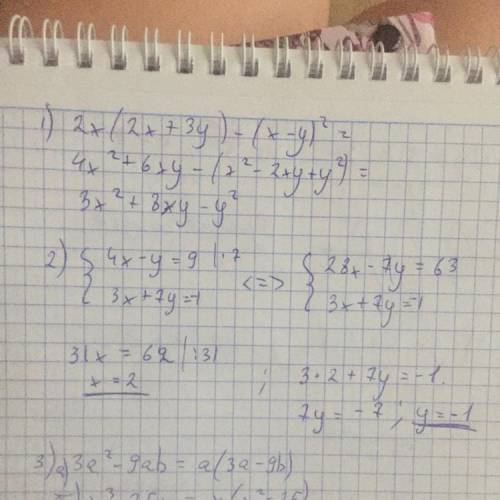 1) 2x(2x+3y)-(x-y)² =
4x²+6xy-(x²-2xy+y²) =
3x²+8xy-y²
2) { 4x-y=9 |·7 <=> { 28x-7y=63
3x+7y=-1 3x+7y=-1
31x = 62 |:31
x=2 ; 3·2+7y=-1.
7y=-7; y=-1
3) a) 3a²-9ab = a(3a-9b)